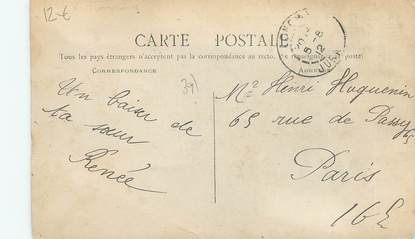 12-€
CARTE POSTALE
Tous les pays étrangers n'acceptent pas la correspondance au recto. Se renseigner à la poste
CORRESPONDANCE
391
Un baiser de
ta sœur
Renée
Mr Henri Huguenin
65 rue de Passy
Paris
16E